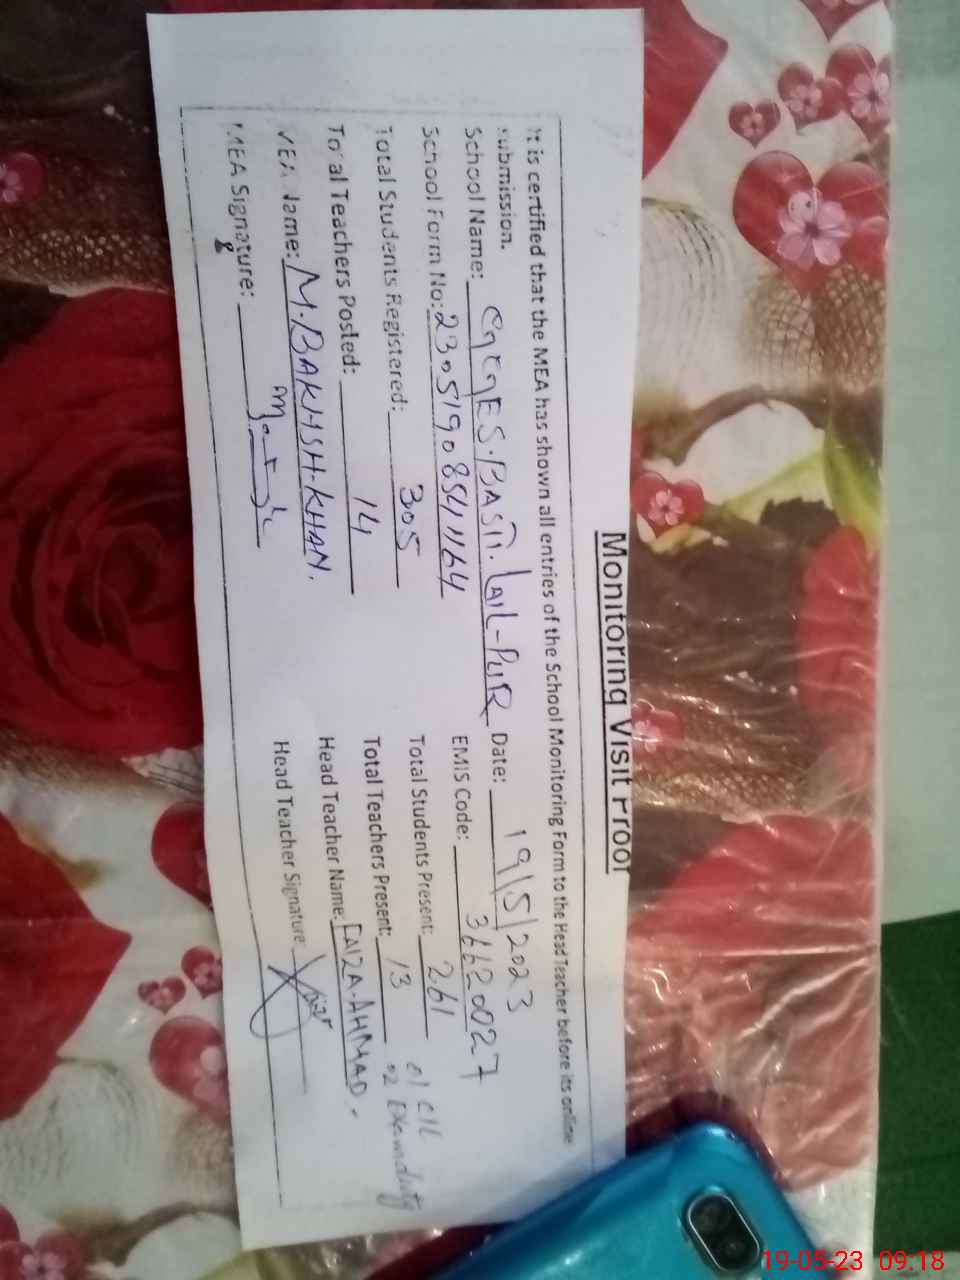 Monitoring Visit Proof
It is certified that the MEA has shown all entries of the School Monitoring Form to the Head Teacher before its online
submission.
School Name: GGES. BASTI. LAIL-PUR Date: 19/5/2023
School Form No: 23051908541164 EMIS Code: 36620027
Total Students Registered: 305 Total Students Present: 261
Total Teachers Posted: 14 Total Teachers Present: 13
01 C/L
02 Exam duty
MEA Name: M.BAKHSH.KHAN. Head Teacher Name: FAIZA.AHMAD.
MEA Signature: Head Teacher Signature:
19-05-23 09:18